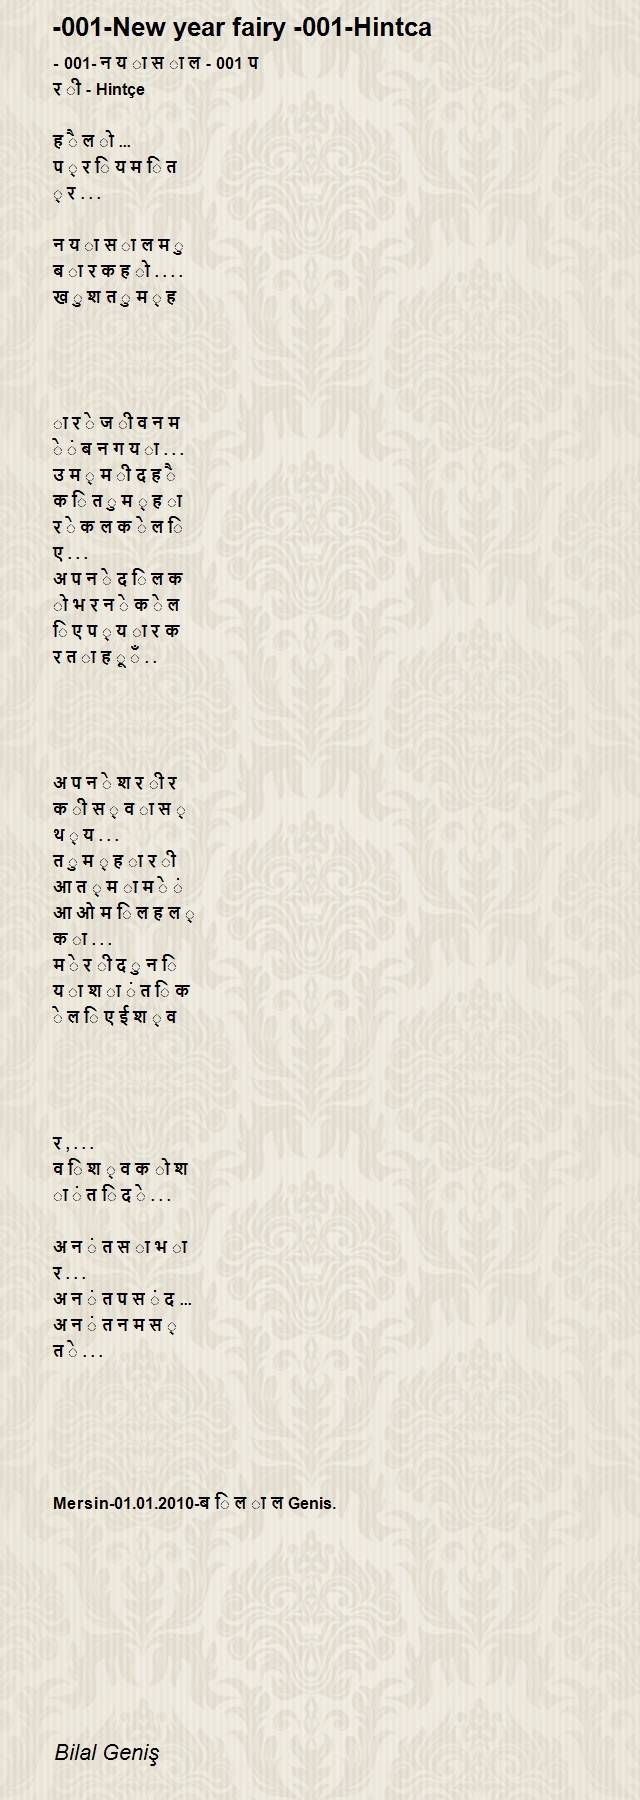 -001-New year fairy -001-Hintca
- 001- न य ा स ा ल - 001 प
र ी - Hintçe
ह ै ल ो ...
प ् र ि य म ि त
् र . . .
न य ा स ा ल म ु
ब ा र क ह ो . . . .
ख ु श त ु म ् ह
ा र े ज ी व न म
े ं ब न ग य ा . . .
उ म ् म ी द ह ै
क ि त ु म ् ह ा
र े क ल क े ल ि
ए . . .
अ प न े द ि ल क
ो भ र न े क े ल
ि ए प ् य ा र क
र त ा ह ू ँ . .
अ प न े श र ी र
क ी स ् व ा स ्
थ ् य . . .
त ु म ् ह ा र ी
आ त ् म ा म े ं
आ ओ म ि ल ह ल ्
क ा . . .
म े र ी द ु न ि
य ा श ा ं त ि क
े ल ि ए ई श ् व
र , . . .
व ि श ् व क ो श
ा ं त ि द े . . .
अ न ं त स ा भ ा
र . . .
अ न ं त प स ं द ...
अ न ं त न म स ्
त े . . .
Mersin-01.01.2010-ब ि ल ा ल Genis.
Bilal Geniş